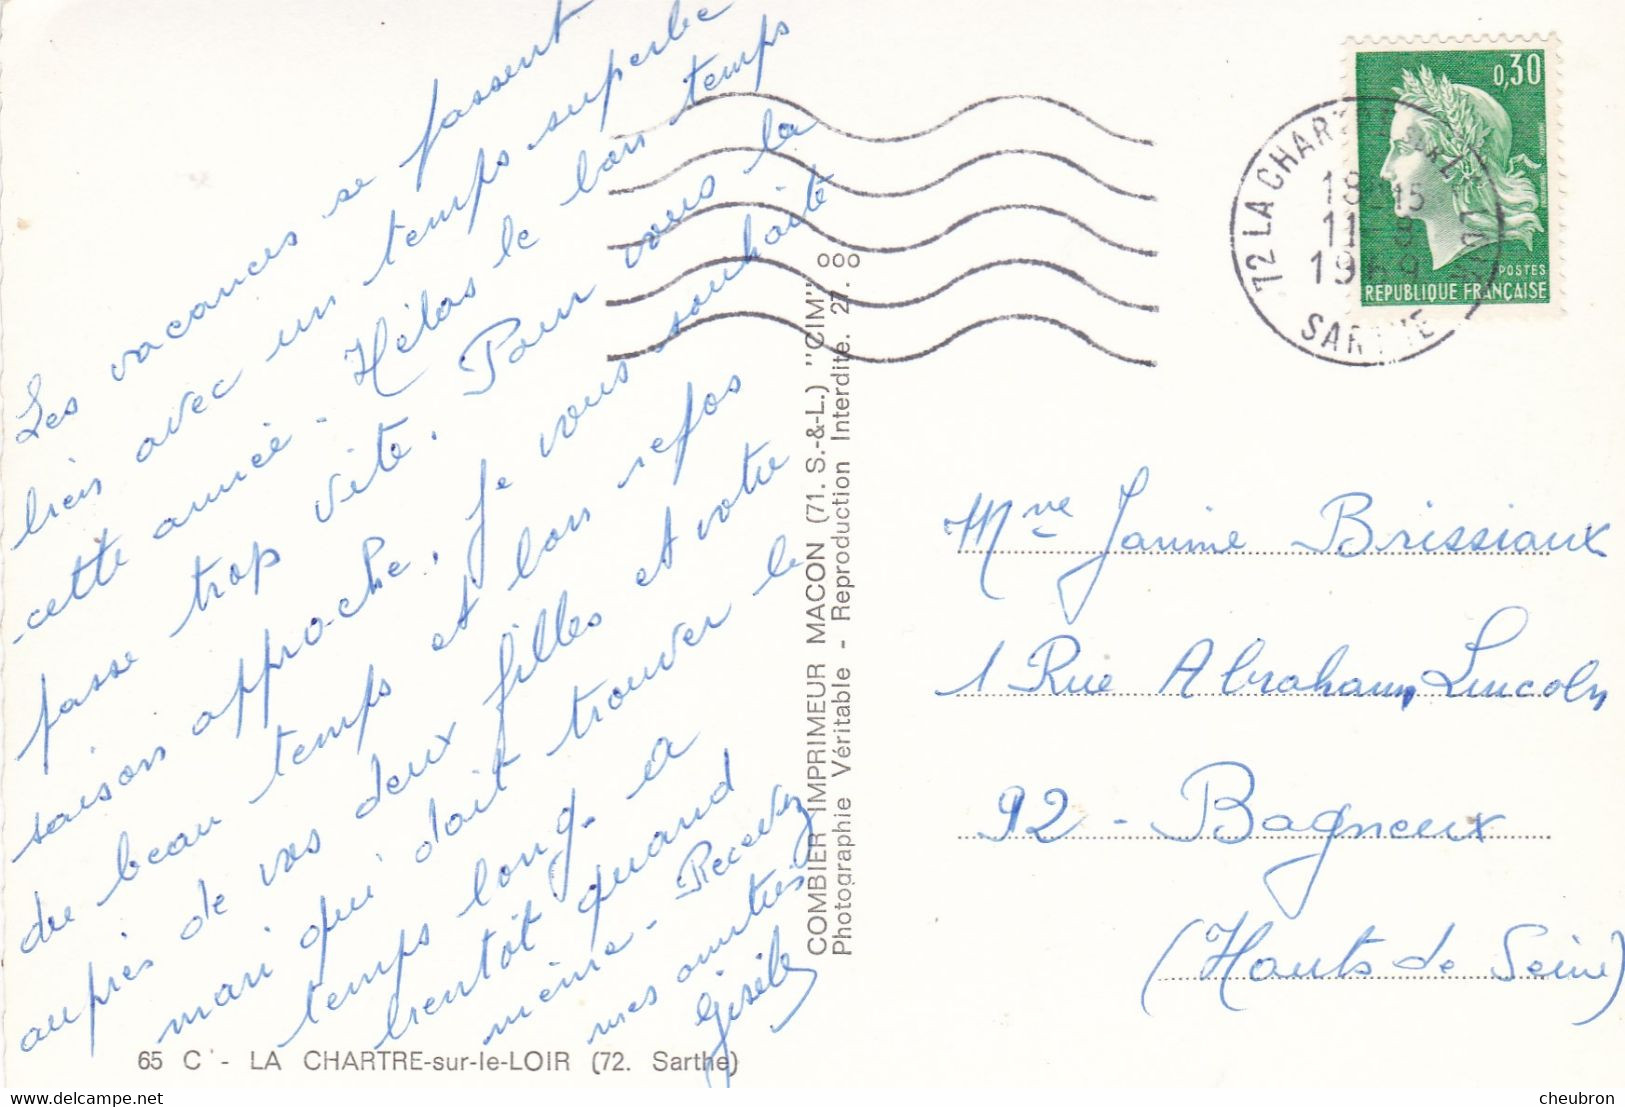 Les vacances se passent
bien avec un temps superbe
cette année - Hélas le bon temps
passe trop vite. Pour vous la
saison approche. Je vous souhaite
du beau temps et bon repos
auprès de vos deux filles et votre
mari qui doit trouver le
temps long. a
bientôt quand
même - Recevez
mes amitiés
Gisèle
65 C - LA CHARTRE-sur-le-LOIR (72. Sarthe)
COMBIER IMPRIMEUR MACON (71. S.-&-L.) "CIM"
Photographie Véritable - Reproduction Interdite. 27. 000
0,30
POSTES
REPUBLIQUE FRANÇAISE
72 LA CHARTRE SUR LE LOIR
18 15
11 - 8
1969
SARTHE
Mme Janine Brissiaux
1 Rue Abraham Lincoln
92 - Bagneux
(Hauts de Seine)
cheubron